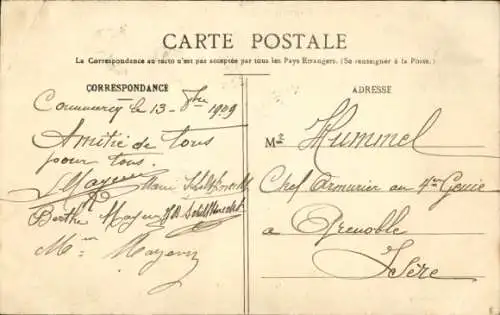 CARTE POSTALE
La Correspondance au recto n'est pas acceptée par tous les Pays Etrangers. (Se renseigner à la Poste.)
CORRESPONDANCE
Commercy le 13 - 8bre 1909
Amitié de tous
pour tous.
L Mayeur
Marie
Berthe Mayeur
Mme Mayeur
ADRESSE
Mr Hummel
Chef armurier au 4me Génie
a Grenoble
Isère